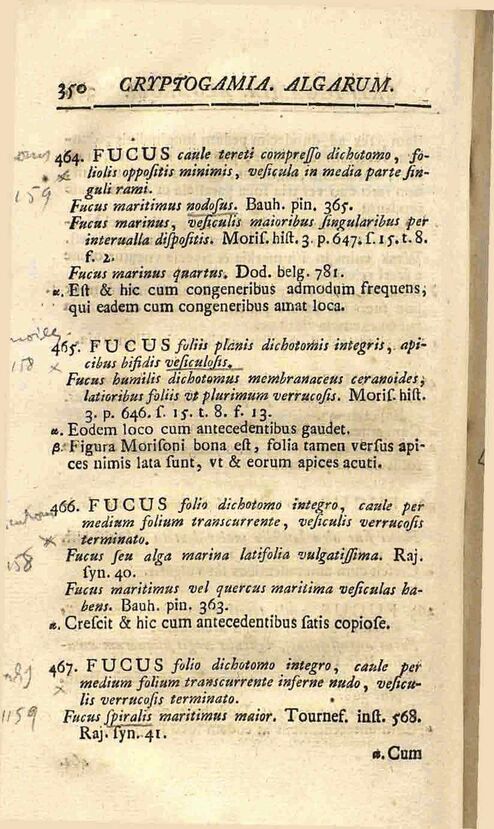 350 CRYPTOGAMIA. ALGARUM.
464. FUCUS caule tereti compreſſo dichotomo, fo-
liolis oppoſitis minimis, veſicula in media parte ſin-
guli rami.
159
Fucus maritimus nodoſus. Bauh. pin. 365.
Fucus marinus, veſiculis maioribus ſingularibus per
intervalla diſpoſitis. Moriſ. hiſt. 3. p. 647. ſ. 15. t. 8.
f. 2.
Fucus marinus quartus. Dod. belg. 781.
α. Eſt & hic cum congeneribus admodum frequens,
qui eadem cum congeneribus amat loca.
465. FUCUS foliis planis dichotomis integris, api-
cibus bifidis veſiculoſis.
158
Fucus humilis dichotomus membranaceus ceranoides,
latioribus foliis vt plurimum verrucoſis. Moriſ. hiſt.
3. p. 646. ſ. 15. t. 8. f. 13.
α. Eodem loco cum antecedentibus gaudet.
β. Figura Moriſoni bona eſt, folia tamen verſus api-
ces nimis lata ſunt, vt & eorum apices acuti.
466. FUCUS folio dichotomo integro, caule per
medium folium transcurrente, veſiculis verrucoſis
terminato.
158
Fucus ſeu alga marina latifolia vulgatiſſima. Raj.
ſyn. 40.
Fucus maritimus vel quercus maritima veſiculas ha-
bens. Bauh. pin. 363.
α. Creſcit & hic cum antecedentibus ſatis copioſe.
467. FUCUS folio dichotomo integro, caule per
medium folium transcurrente inferne nudo, veſicu-
lis verrucoſis terminato.
1159
Fucus ſpiralis maritimus maior. Tournef. inſt. 568.
Raj. ſyn. 41.
α. Cum